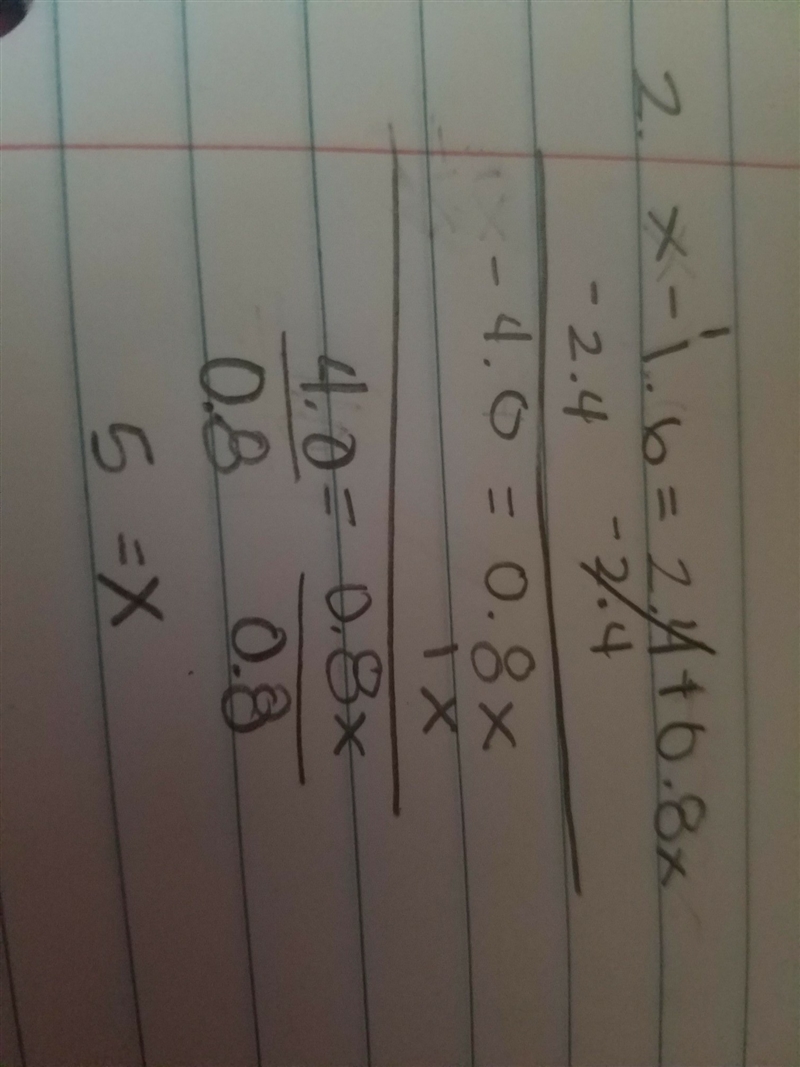 2. x - 1.6 = 2.4 + 0.8x
-2.4 -2.4
-4.0 = 0.8x
1x
4.0 = 0.8x
0.8 0.8
5 = x